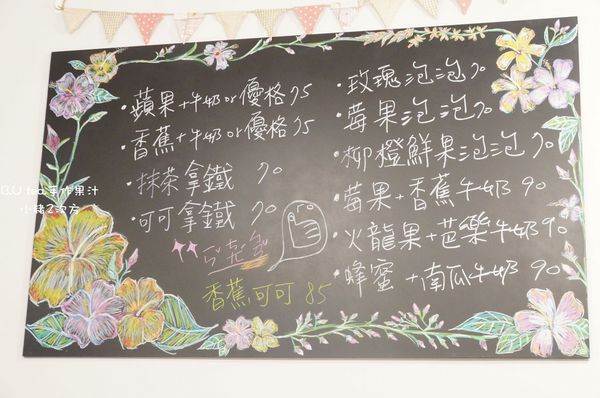 蘋果+牛奶or優格75
香蕉+牛奶or優格75
抹茶拿鐵 70
可可拿鐵 70
香蕉可可 85
玫瑰泡泡70
莓果泡泡70
柳橙鮮果泡泡70
莓果+香蕉牛奶 90
火龍果+芭樂牛奶90
蜂蜜+南瓜牛奶 90
B.U tea.手作果汁
小豬2次方